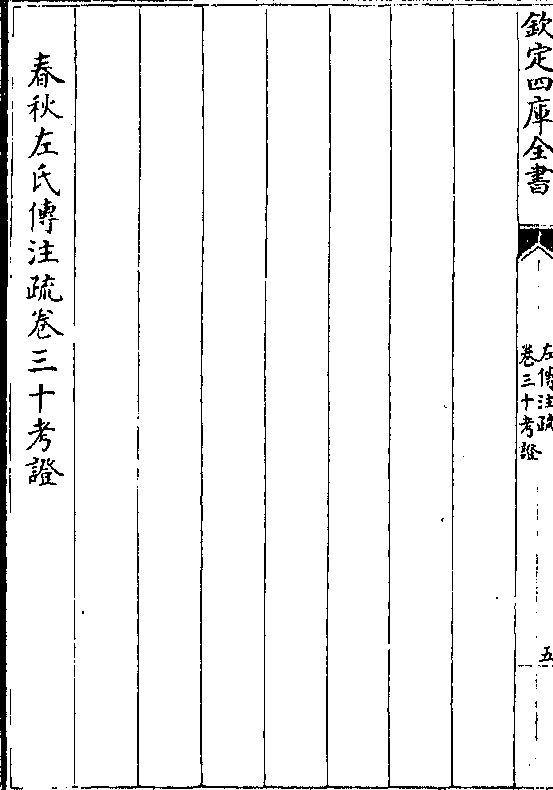 欽定四庫全書
左傳注疏
卷三十考證
五
春秋左氏傳注疏卷三十考證